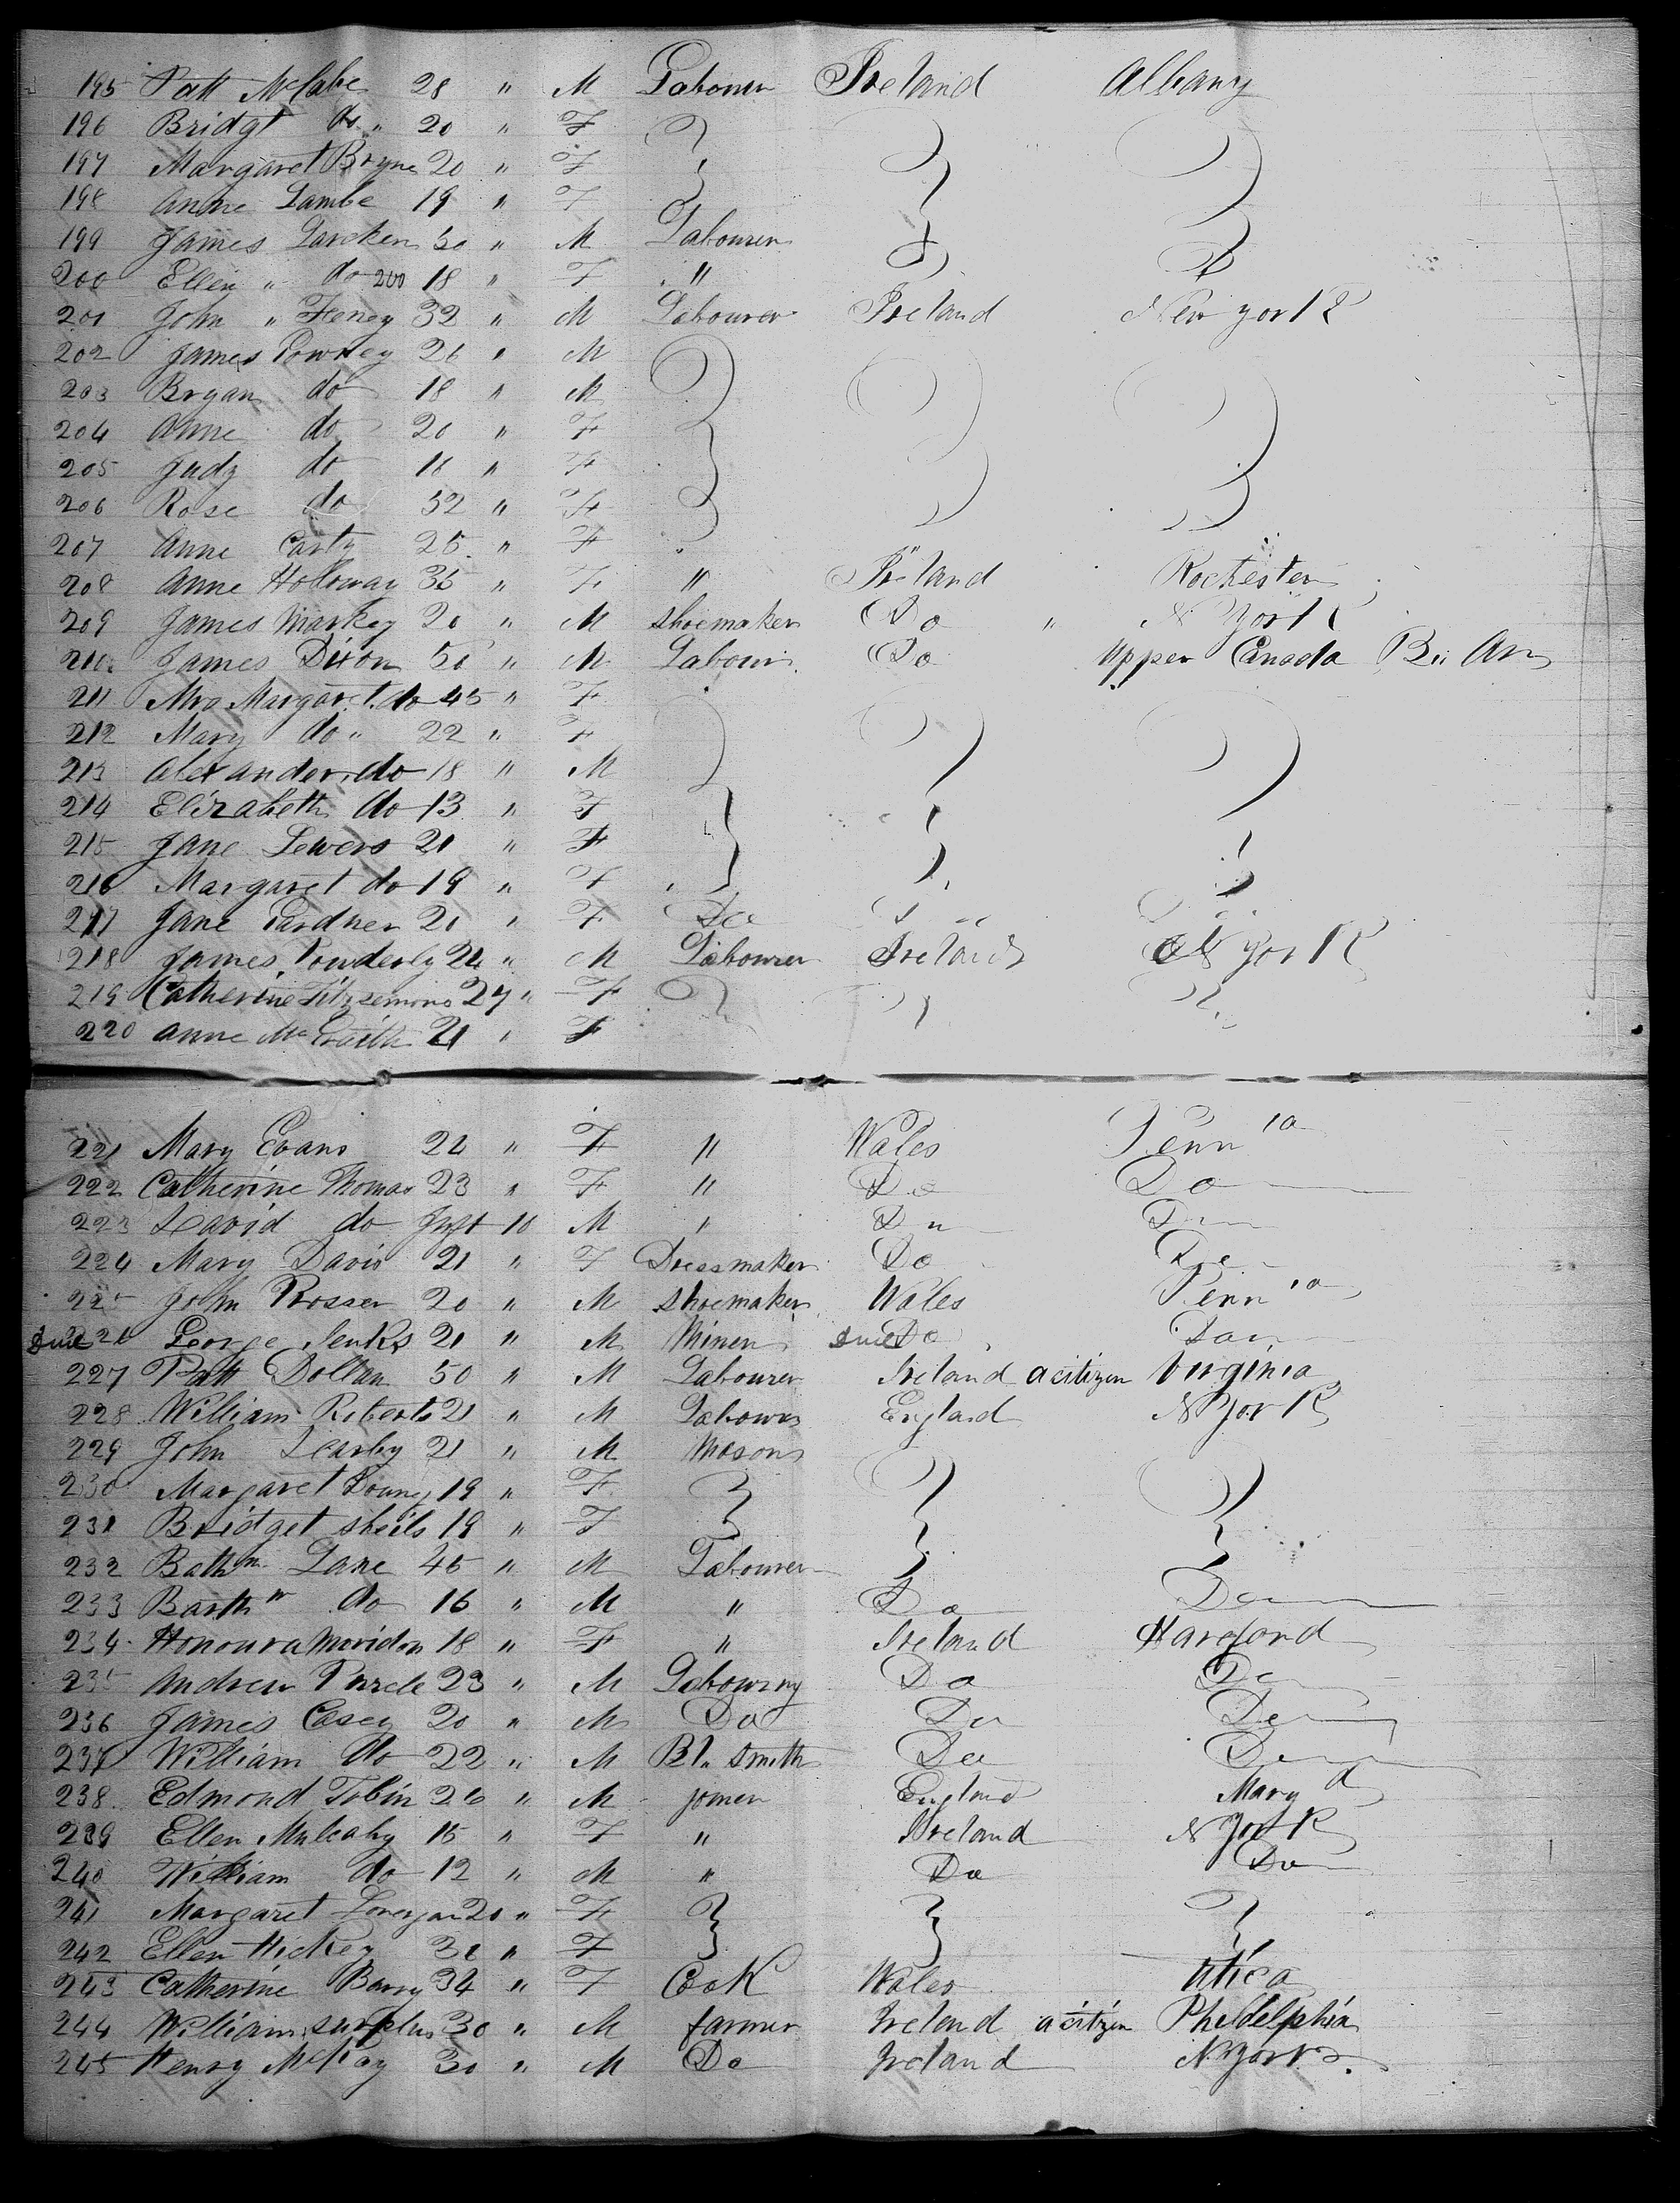 195 Patt McCabe 28 " M Labourer Ireland Albany
196 Bridgt do " 20 " F
197 Margaret Bryne 20 " F
198 Anne Lambe 19 " F
199 James Larcken 50 " M Labourer
200 Ellen " do 200 18 " F "
201 John " Feney 32 " M Labourer Ireland New York
202 James 26 " M
203 Bryan do 18 " M
204 Anne do 20 " F
205 Judy do 16 " F
206 Rose do 52 " F
207 Anne Carty 25 " F "
208 Anne Holloway 35 " F " Ireland Rochester
209 James Markey 20 " M Shoemaker Do " N York
210 James Dixon 50 " M Labour Do Upper Canada
211 Mrs Margaret do 45 " F
212 Mary do " 22 " F
213 Alexander do 18 " M
214 Elizabeth do 13 " F
215 Jane Lewers 21 " F
216 Margaret do 19 " F
217 Jane Gardner 21 " F Do
218 James Powderly 24 " M Labourer Ireland N York
219 Catherine Fitzsemons 27 " F
220 Anne 21 " F
221 Mary Evans 24 " F " Wales Penn ia
222 Catherine Thomas 23 " F " Do Do
223 David do 10 M " Do Do
224 Mary Davis 21 " F Dressmaker Do Do
225 John Rosser 20 " M Shoemaker Wales Penn ia
226 George Jenks 21 " M Miner Do Do
227 Patt Dollan 50 " M Labourer Ireland a citizen Virginia
228 William Roberts 21 " M Labourer England N York
229 John Learby 21 " M Mason
230 Margaret 19 " F
231 Bridget Sheils 19 " F
232 Bathm Lane 45 " M Labourer
233 Barthw do 16 " M " Do Do
234 Honoura Moridon 18 " F " Ireland Harford
235 Andrew 23 " M Labouring Do Do
236 James Casey 20 " M Do Do Do
237 William do 22 " M Bl. Smith Do Do
238 Edmond Tobin 26 " M joiner England Maryd
239 Ellen Mulcahy 15 " F " Ireland N York
240 William do 12 " M " Do Do
241 Margaret Lonergan 20 " F
242 Ellen Hickey 32 " F
243 Catherine Barry 34 " F Cook Wales Utica
244 William Surplus 30 " M farmer Ireland a citizen Pheldelphia
245 Henry McKay 30 " M Do Ireland N York.